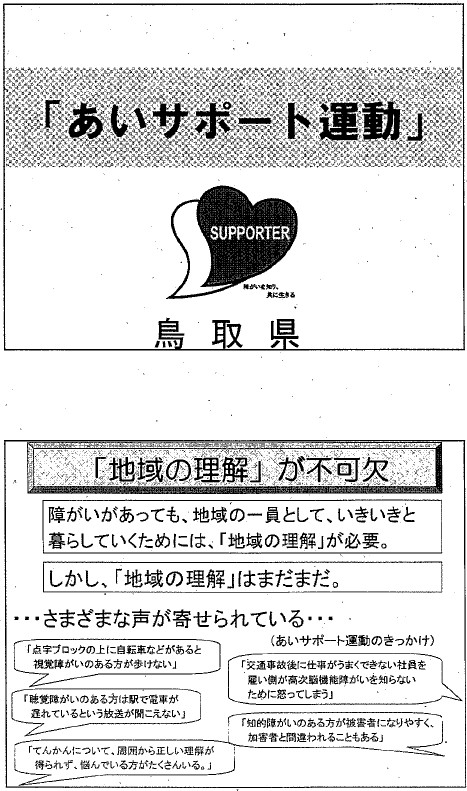 「あいサポート運動」
SUPPORTER
障がいを知り、
共に生きる
鳥取県
「地域の理解」が不可欠
障がいがあっても、地域の一員として、いきいきと
暮らしていくためには、「地域の理解」が必要。
しかし、「地域の理解」はまだまだ。
・・・さまざまな声が寄せられている・・・
(あいサポート運動のきっかけ)
「点字ブロックの上に自転車などがあると
視覚障がいのある方が歩けない」
「聴覚障がいのある方は駅で電車が
遅れているという放送が聞こえない」
「てんかんについて、周囲から正しい理解が
得られず、悩んでいる方がたくさんいる。」
「交通事故後に仕事がうまくできない社員を
雇い側が高次脳機能障がいを知らない
ために怒ってしまう」
「知的障がいのある方が被害者になりやすく、
加害者と間違われることもある」